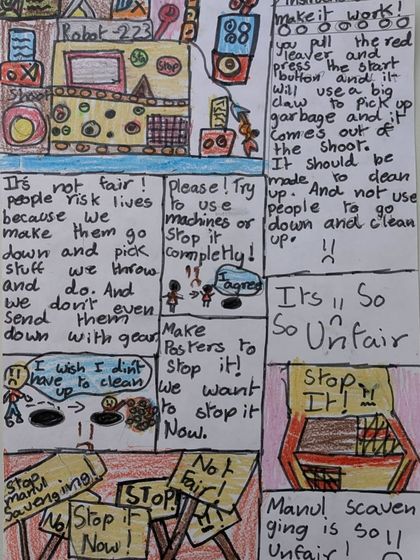 Robot-223
Start
Stop
make it work!
you pull the red
leaver and
press the start
button and it
will use a big
claw to pick up
garbage and it
comes out of
the shoot.
It should be
made to clean
up. And not use
people to go
down and clean
up.
It's not fair!
people risk lives
because we
make them go
down and pick
stuff we throw
and do. And
we don't even
send them
down with gear
Please! Try
to use
machines or
Stop it
completly!
I
agree
Its So
So Unfair
I wish I din't
have to clean
up
Make
Posters to
Stop it!
we want
to stop it
Now.
STOP
It!
Stop
manul
Scavenging!
No!
Stop it
Now!
STOP!
Not
fair!
Manul scaven
ging is So
Unfair!